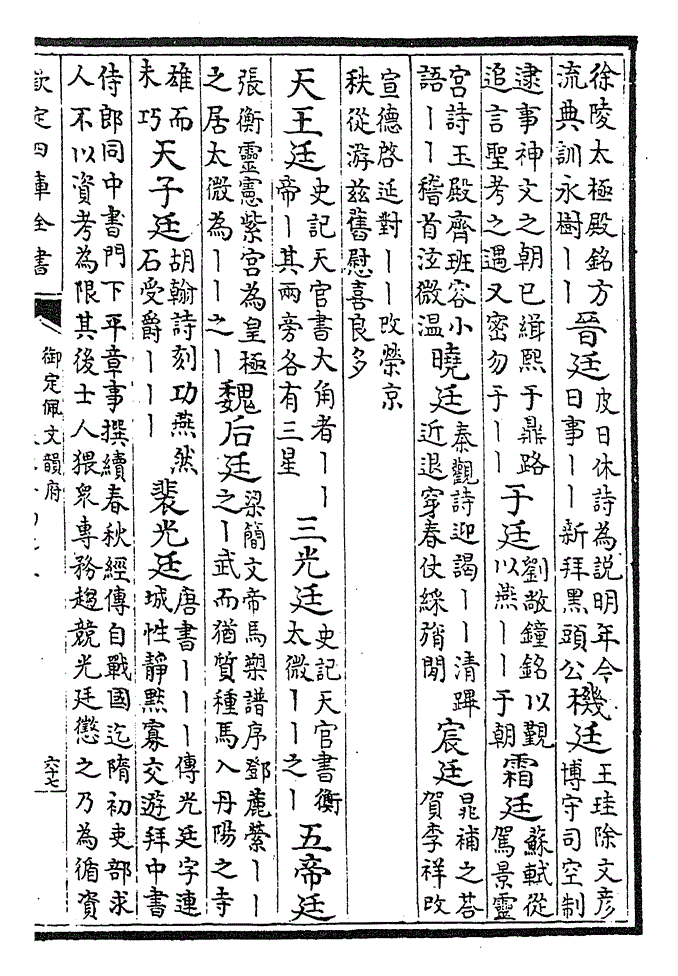 徐陵太極殿銘方流典訓永樹丨丨晉廷皮日休詩為説明年今日事丨丨新拜黒頭公機廷王珪除文彦博守司空制
逮事神文之朝已緝熙于鼎路追言聖考之遇又密勿于丨丨于廷劉敞鐘銘以觀以燕丨丨于朝霜廷蘇軾從駕景靈
宫詩玉殿齊班容小語丨丨稽首泫微温曉廷秦觀詩迎謁丨丨清蹕近退穿春仗綵旓閒宸廷晁補之荅賀李祥改
宣德啓延對丨丨改榮京秩從游兹舊慰喜良多
天王廷史記天官書大角者丨丨帝丨其兩旁各有三星三光廷史記天官書衡太微丨丨之丨五帝廷
張衡靈憲紫宫為皇極之居太微為丨丨之丨魏后廷梁簡文帝馬槊譜序鄧麓縈丨丨之丨武而猶質種馬入丹陽之寺
雄而未巧天子廷胡翰詩刻功燕然石受爵丨丨丨裴光廷唐書丨丨丨傳光廷字連城性靜黙寡交遊拜中書
侍郎同中書門下平章事撰續春秋經傳自戰國迄隋初吏部求人不以資考為限其後士人猥衆專務趨競光廷懲之乃為循資
欽定四庫全書
御定佩文韻府
六十七